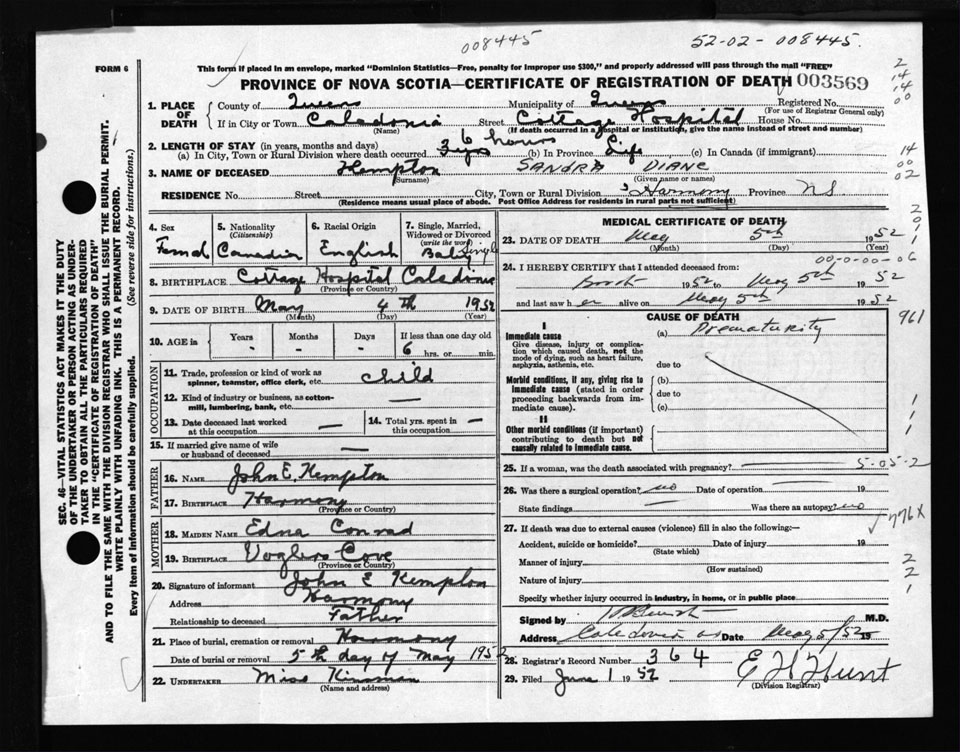 008445
52-02-008445.
FORM 6
This form if placed in an envelope, marked "Dominion Statistics—Free, penalty for improper use $300," and properly addressed will pass through the mail "FREE"
PROVINCE OF NOVA SCOTIA—CERTIFICATE OF REGISTRATION OF DEATH 003569
1. PLACE OF DEATH County of Queens Municipality of Queens Registered No.
(For use of Registrar General only)
If in City or Town Caledonia Street Cottage Hospital House No.
(Name) (If death occurred in a hospital or institution, give the name instead of street and number)
6 hours
2. LENGTH OF STAY (in years, months and days)
(a) In City, Town or Rural Division where death occurred 3 yrs (b) In Province Life (c) In Canada (if immigrant)
3. NAME OF DECEASED Kempton SANDRA DIANE
(Surname) (Given name or names)
RESIDENCE No. Street City, Town or Rural Division Harmony Province N.S.
(Residence means usual place of abode. Post Office Address for residents in rural parts not sufficient)
2
14
14
00
14
00
02
2
0
1
1
SEC. 46—VITAL STATISTICS ACT MAKES IT THE DUTY
OF THE UNDERTAKER OR PERSON ACTING AS UNDER-
TAKER TO OBTAIN ALL THE PARTICULARS REQUIRED
IN THE "CERTIFICATE OF REGISTRATION OF DEATH"
AND TO FILE THE SAME WITH THE DIVISION REGISTRAR WHO SHALL ISSUE THE BURIAL PERMIT.
WRITE PLAINLY WITH UNFADING INK. THIS IS A PERMANENT RECORD.
Every item of information should be carefully supplied. (See reverse side for instructions.)
4. Sex 5. Nationality (Citizenship) 6. Racial Origin 7. Single, Married, Widowed or Divorced (write the word)
Femal Canadian English Baby Single
8. BIRTHPLACE Cottage Hospital Caledonia
(Province or Country)
9. DATE OF BIRTH May 4th 1952
(Month) (Day) (Year)
10. AGE in Years Months Days If less than one day old
- - - 6 hrs. or min.
OCCUPATION
11. Trade, profession or kind of work as spinner, teamster, office clerk, etc. child
12. Kind of industry or business, as cotton-mill, lumbering, bank, etc. —
13. Date deceased last worked at this occupation — 14. Total yrs. spent in this occupation —
15. If married give name of wife or husband of deceased —
FATHER
16. NAME John E. Kempton
17. BIRTHPLACE Harmony
(Province or Country)
MOTHER
18. MAIDEN NAME Edna Conrad
19. BIRTHPLACE Voglers Cove
(Province or Country)
20. Signature of informant John E Kempton
Address Harmony
Relationship to deceased Father
21. Place of burial, cremation or removal Harmony
Date of burial or removal 5th day of May 1952
22. UNDERTAKER Miss Kinsman
(Name and address)
MEDICAL CERTIFICATE OF DEATH
23. DATE OF DEATH May 5th 1952
(Month) (Day)
00-0-00-06
24. I HEREBY CERTIFY that I attended deceased from:
Birth 1952 to May 5th 1952
and last saw h er alive on May 5th 1952
CAUSE OF DEATH
961
I
Immediate cause
Give disease, injury or complication which caused death, not the mode of dying, such as heart failure, asphyxia, asthenia, etc.
(a) Prematurity
due to
Morbid conditions, if any, giving rise to immediate cause (stated in order proceeding backwards from immediate cause).
(b)
due to
(c)
1
1
1
II
Other morbid conditions (if important) contributing to death but not causally related to immediate cause.
25. If a woman, was the death associated with pregnancy? 5-05-2
26. Was there a surgical operation? no Date of operation 19
State findings Was there an autopsy? no
776X
27. If death was due to external causes (violence) fill in also the following:—
Accident, suicide or homicide? Date of injury 19
(State which)
Manner of injury
(How sustained)
Nature of injury
2
2
1
Specify whether injury occurred in industry, in home, or in public place
Signed by M.D.
Address Caledonia Date May 5/52 19
28. Registrar's Record Number 364
29. Filed June 1 1952 E H Hunt
(Division Registrar)